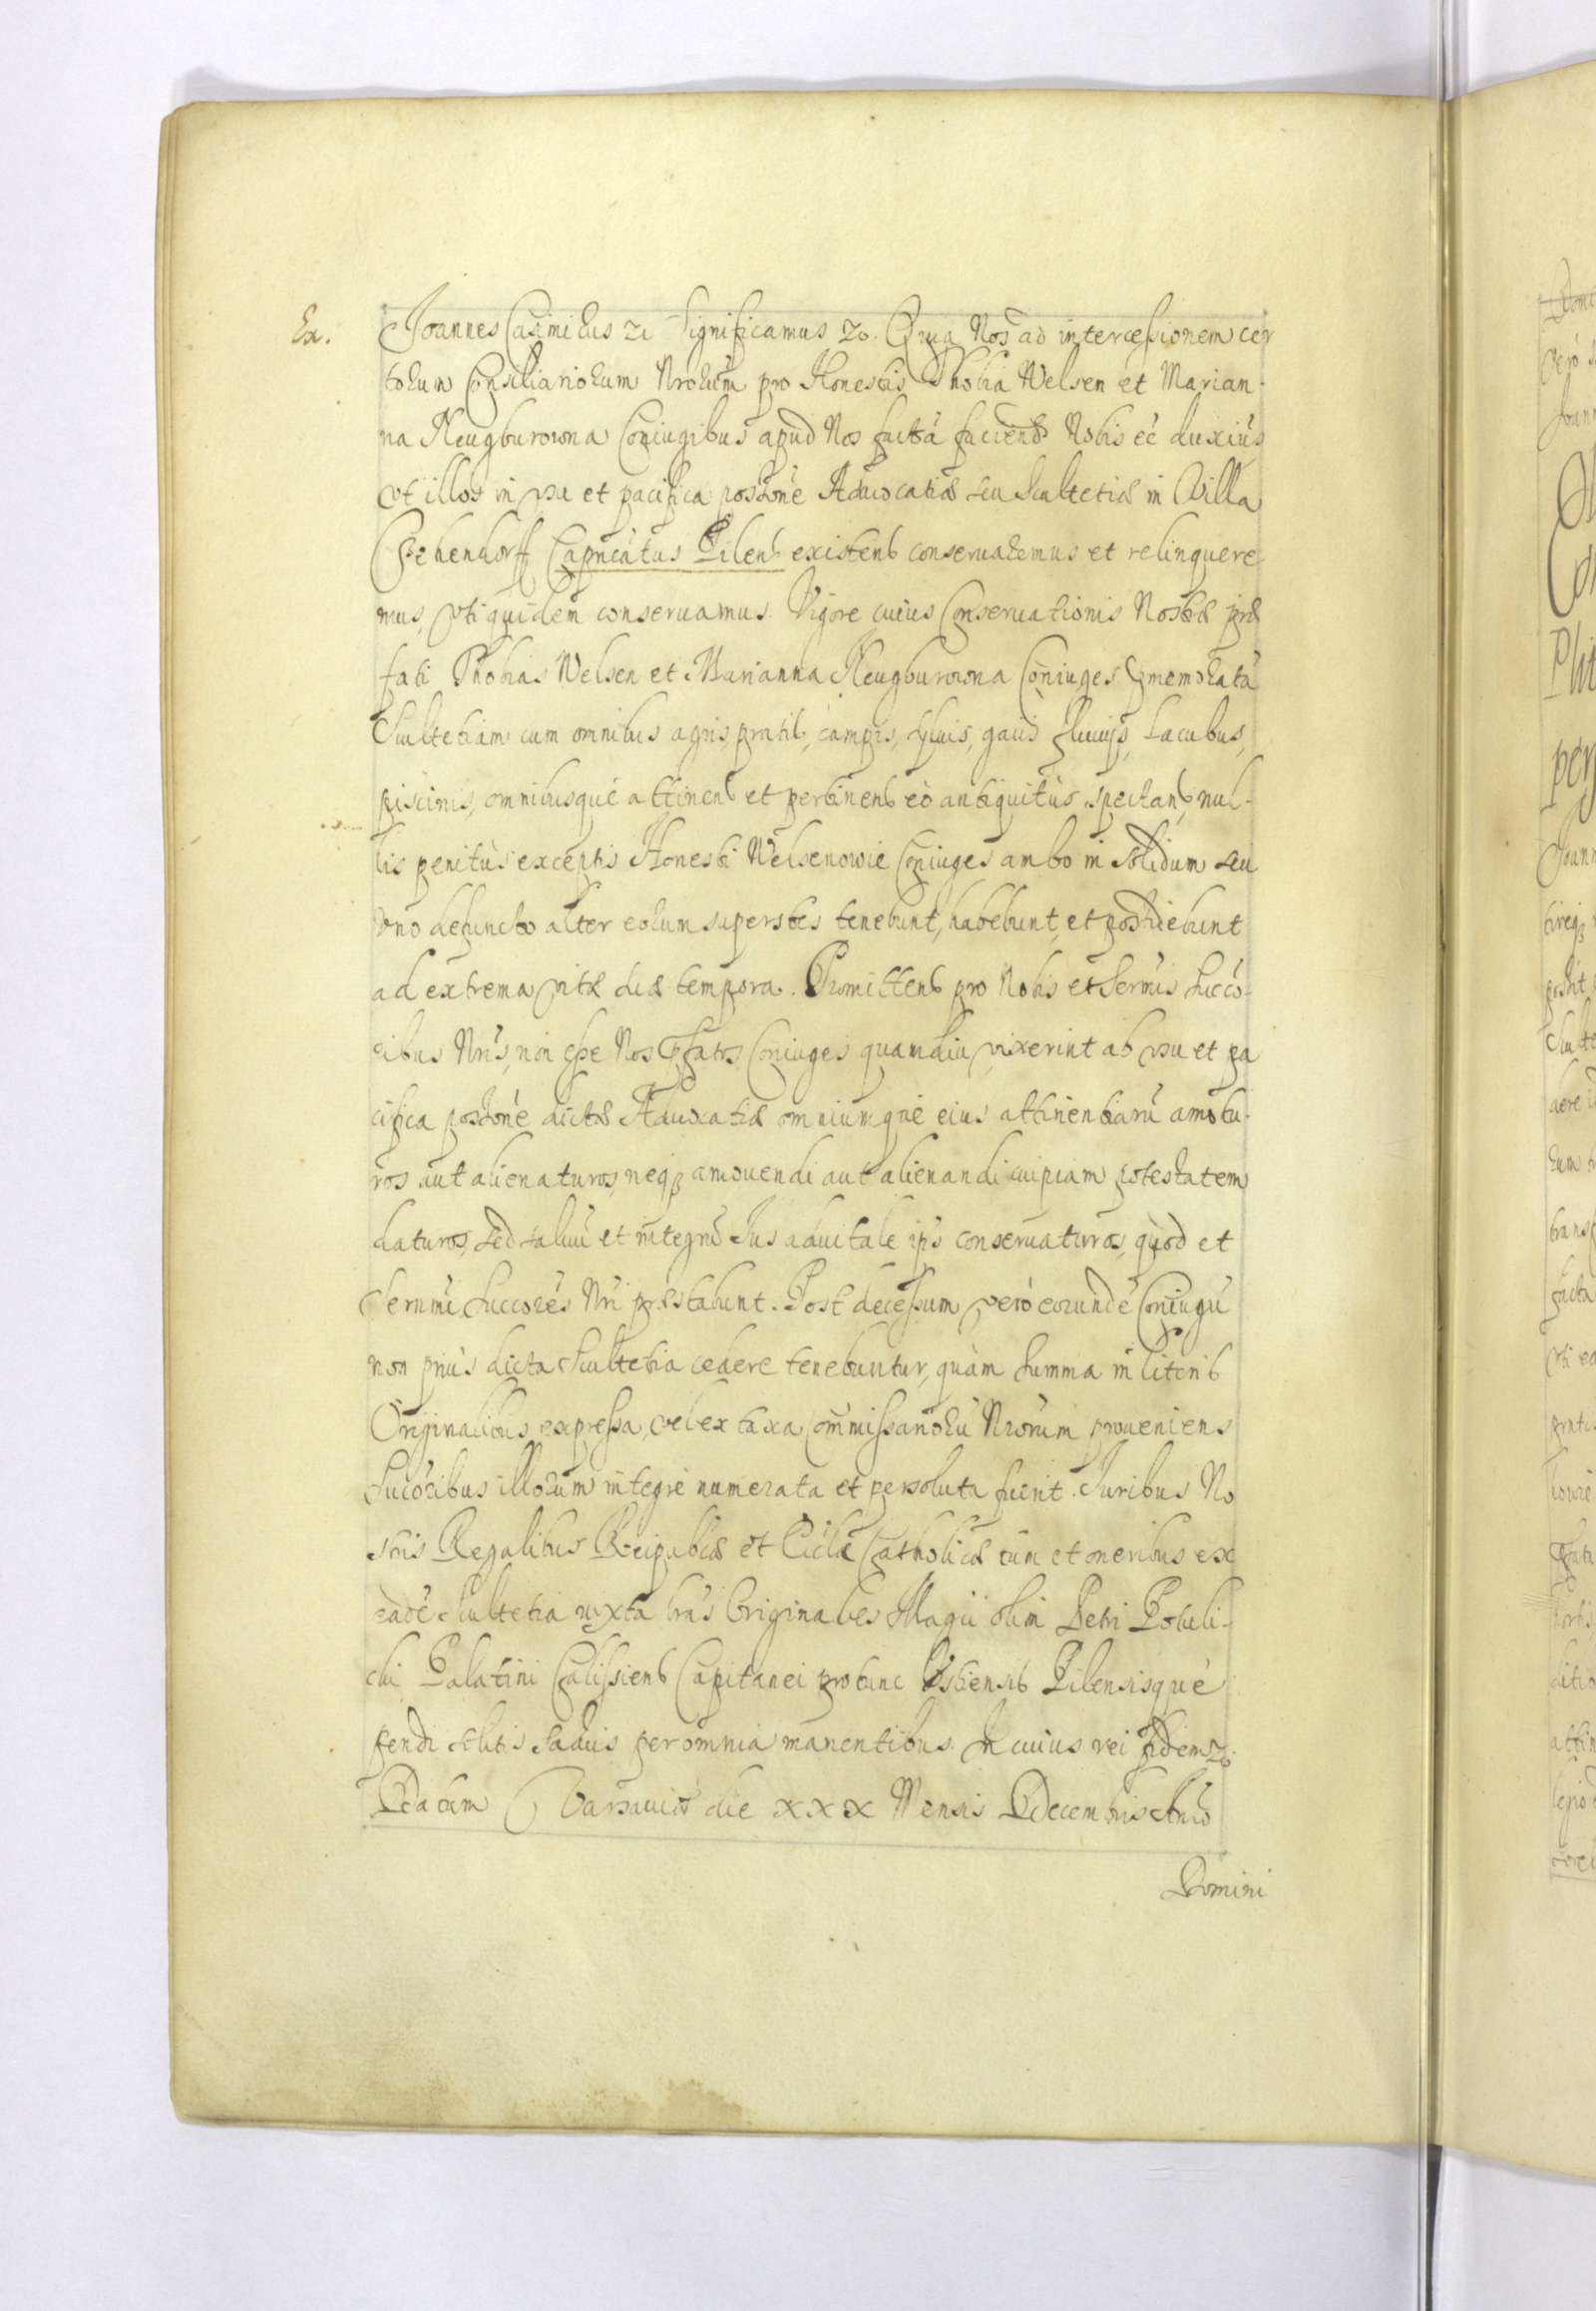 Ex.
Joannes Casimirus etc Significamus etc. Quia Nos ad intercessionem cer
torum Consiliariorum Nrorum pro Honestis Thobia Welsen et Marian-
na Neugburowna Coniugibus apud Nos factā faciend Nobis eē duxim9,
vt illos in vsu et pacifica possone Aduocatiæ seu Scultetiæ in Villa
Capneatus Pilens existens conseruaremus et relinquere
mus, vti quidem conseruamus. Vigore cuius Conseruationis Nostræ præ
fati Thobias Welsen et Marianna Neugburowna Coniuges memoratā
Scultetiam cum omnibus agris, pratis, campis, syluis, gais fluuijs, Lacubus,
piscinis, omnibusque attinens et pertinens eò antiquitùs spectans, nul-
lis penitùs exceptis Honesti Welsenowie Coniuges ambo in solidum seu
vno defuncto alter eorum superstes tenebunt, habebunt, et possidebunt
ad extrema vitæ suæ tempora. Promittens pro Nobis et Sermis Succo-
ribus Nris, non esse Nos Coniuges quamdiu vixerint ab vsu et pa
cifica possone dictæ Aduocatiæ omniumque eius attinentiarū amotu-
ros aut alienaturos, neq3 amouendi aut alienandi cuipiam potestatem
daturos, sed saluū et integrū Jus aduitale ipis conseruaturos, quòd et
Sermi Succores Nri præstabunt. Post decessum verò eorundē Coniugū
non priùs dicta Scultetia cedere tenebuntur, quàm summa in literis
Originalibus expressa, vel ex taxa Commissariorū Nrorum proueniens
Sucoribus illorum integrè numerata et persoluta fuerit. Juribus No
stris Regalibus Reipublicæ et Ecclæ Catholicæ tum et oneribus ex
eadē Scultetia iuxta lras Originales Magci olim Petri Potuli-
cki Palatini Calissiens Capitanei protunc Vstiensis Pilensisque
pendi solitis saluis per omnia manentibus. In cuius rei fidem etc.
Datum Varsauiæ die XXX Mensis Decembris Anno
Domini